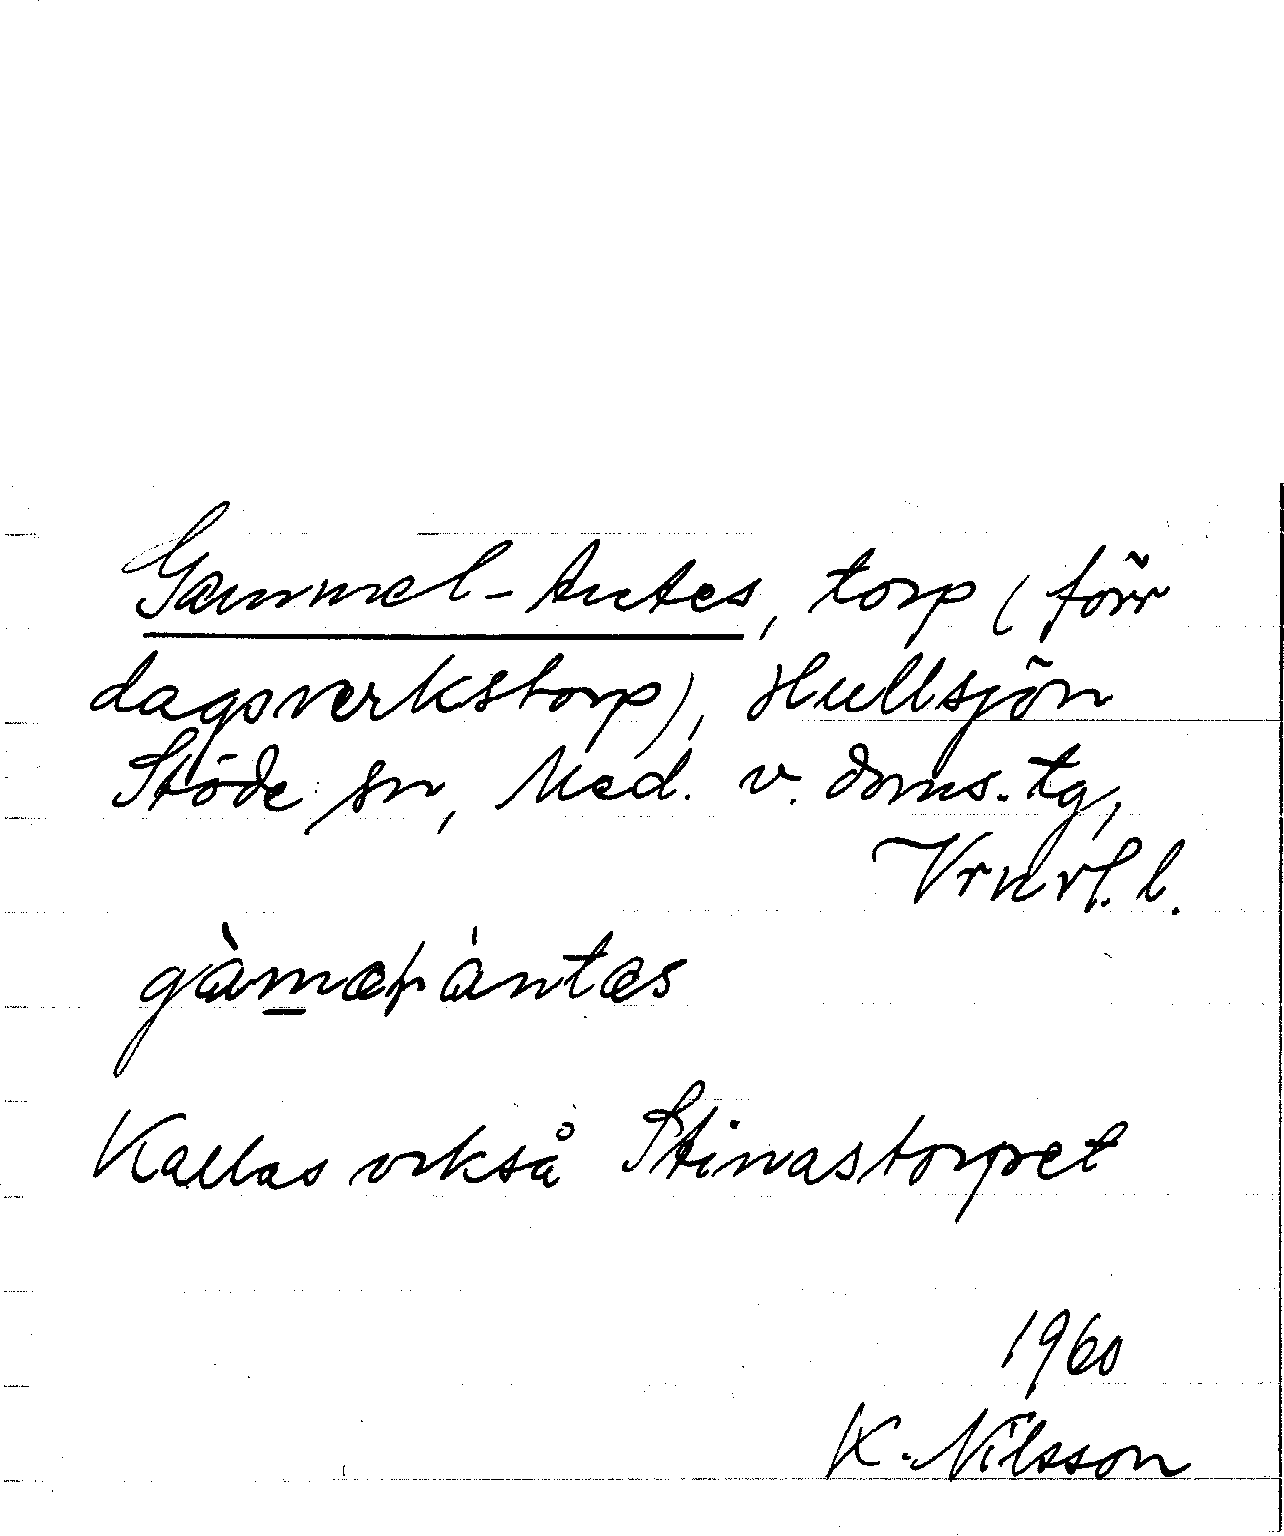 Gammel-Antes, torp (förr
dagsverkstorp), Hullsjön
Stöde sn, Med. v. doms. tg,
Vrnrl. l.
gàmeḷàntes
Kallas också Stinastorpet
1960
K. Nilsson